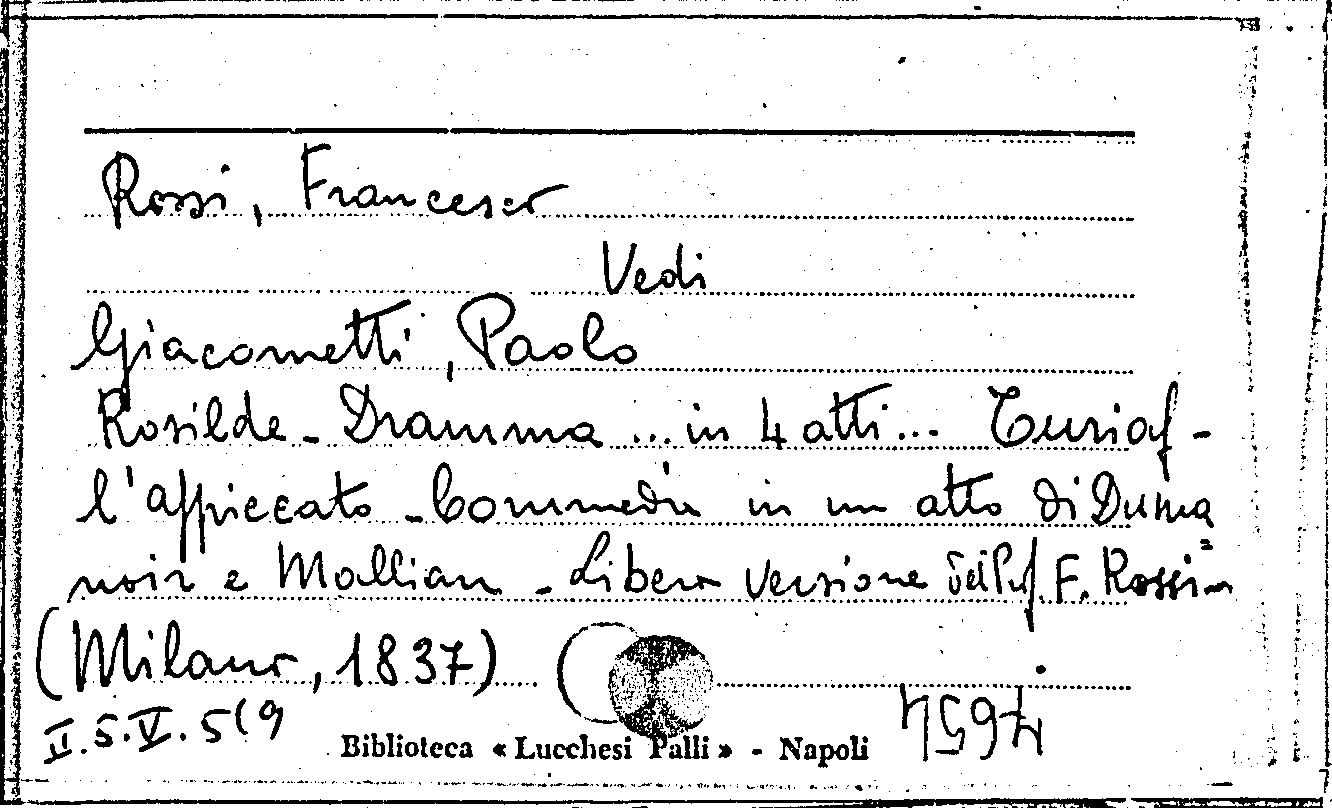 Rossi, Francesco
Vedi
Giacometti, Paolo
Rosilde - Dramma ... in 4 atti ...
l'appiccato - Commedia in un atto di Duma
noir e Mallian - Libera versione del Prof. F. Rossi -
(Milano, 1837)
II.S.V.5(9
Biblioteca « Lucchesi Palli » - Napoli